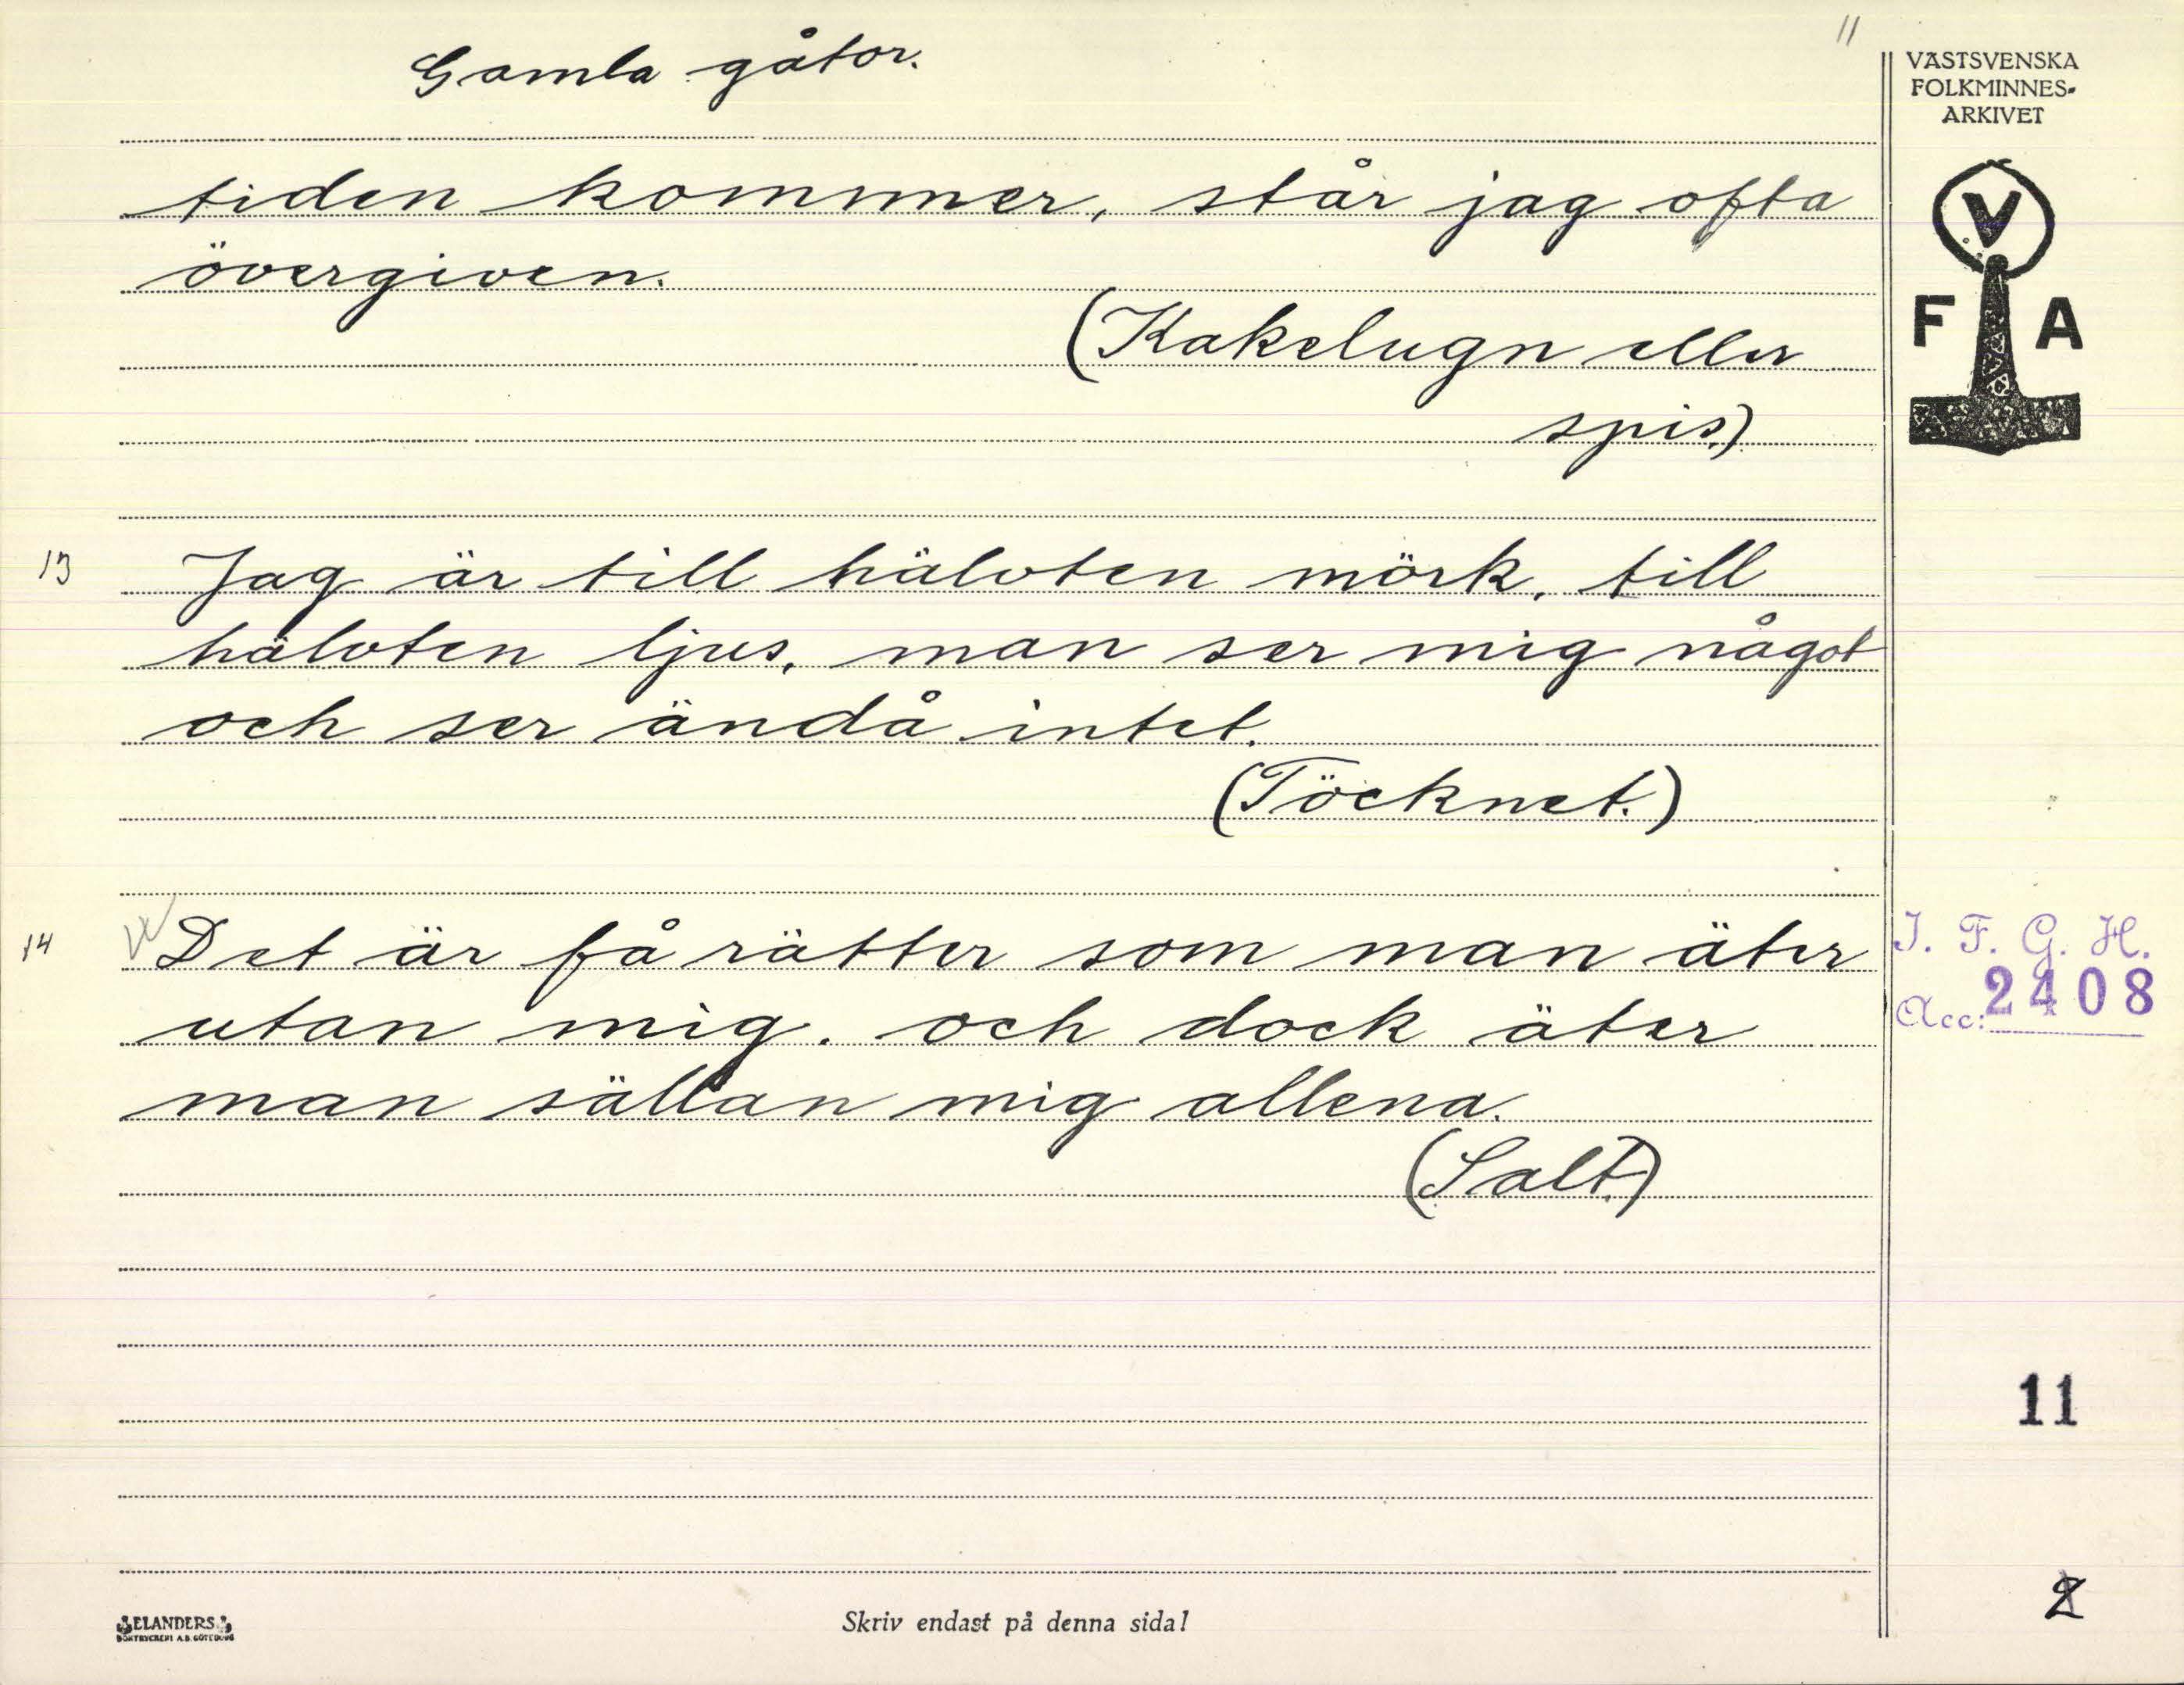 11
Gamla gåtor.
VÄSTSVENSKA
FOLKMINNES-
ARKIVET
V
F A
tiden kommer, står jag ofta
övergiven.
(Kakelugn eller
spis.)
13 Jag är till hälvten mörk, till
hälvten ljus, man ser mig något
och ser ändå intet.
(Töcknet.)
14 Det är få rätter som man äter
utan mig, och dock äter
man sällan mig allena.
(Salt.)
I. F. G. H.
Acc: 2408
11
2
ELANDERS
BOKTRYCKERI A.B. GÖTEBORG
Skriv endast på denna sida!